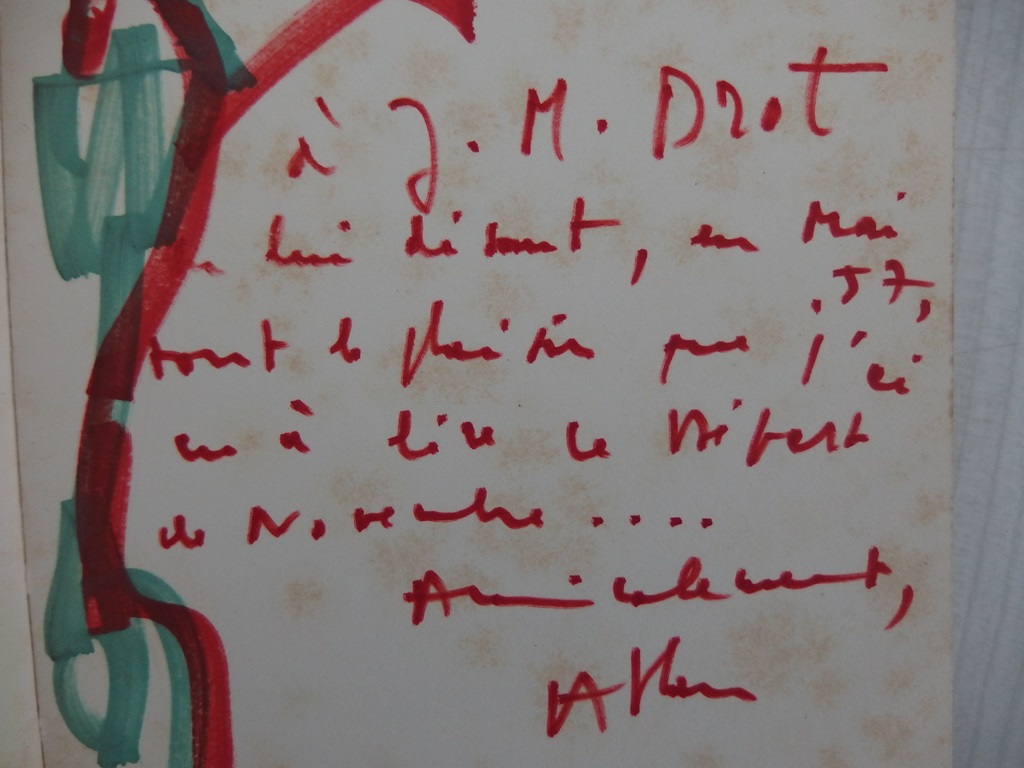 à J. M. Drot
lui disant, en Mai
57,
tout le plaisir que j'ai
eu à lire le
de Novembre ....
Amicalement,